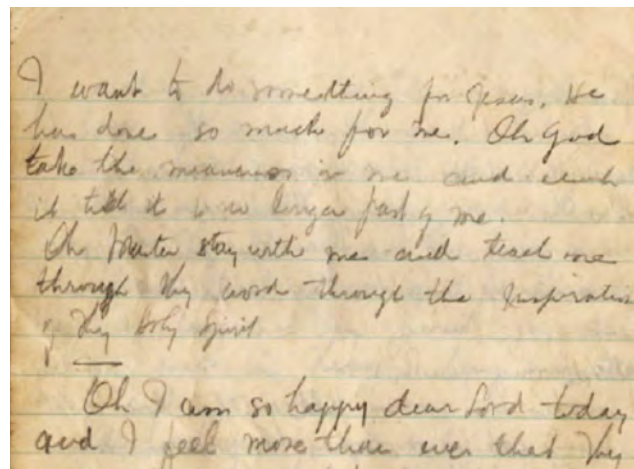 I want to do something for Jesus. He
has done so much for me. Oh God
take the meanness in me and crush
it till it is no longer part of me.
Oh Master stay with me and teach me
through Thy word through the Inspiration
of Thy Holy Spirit
Oh I am so happy dear Lord today
and I feel more than ever that Thy